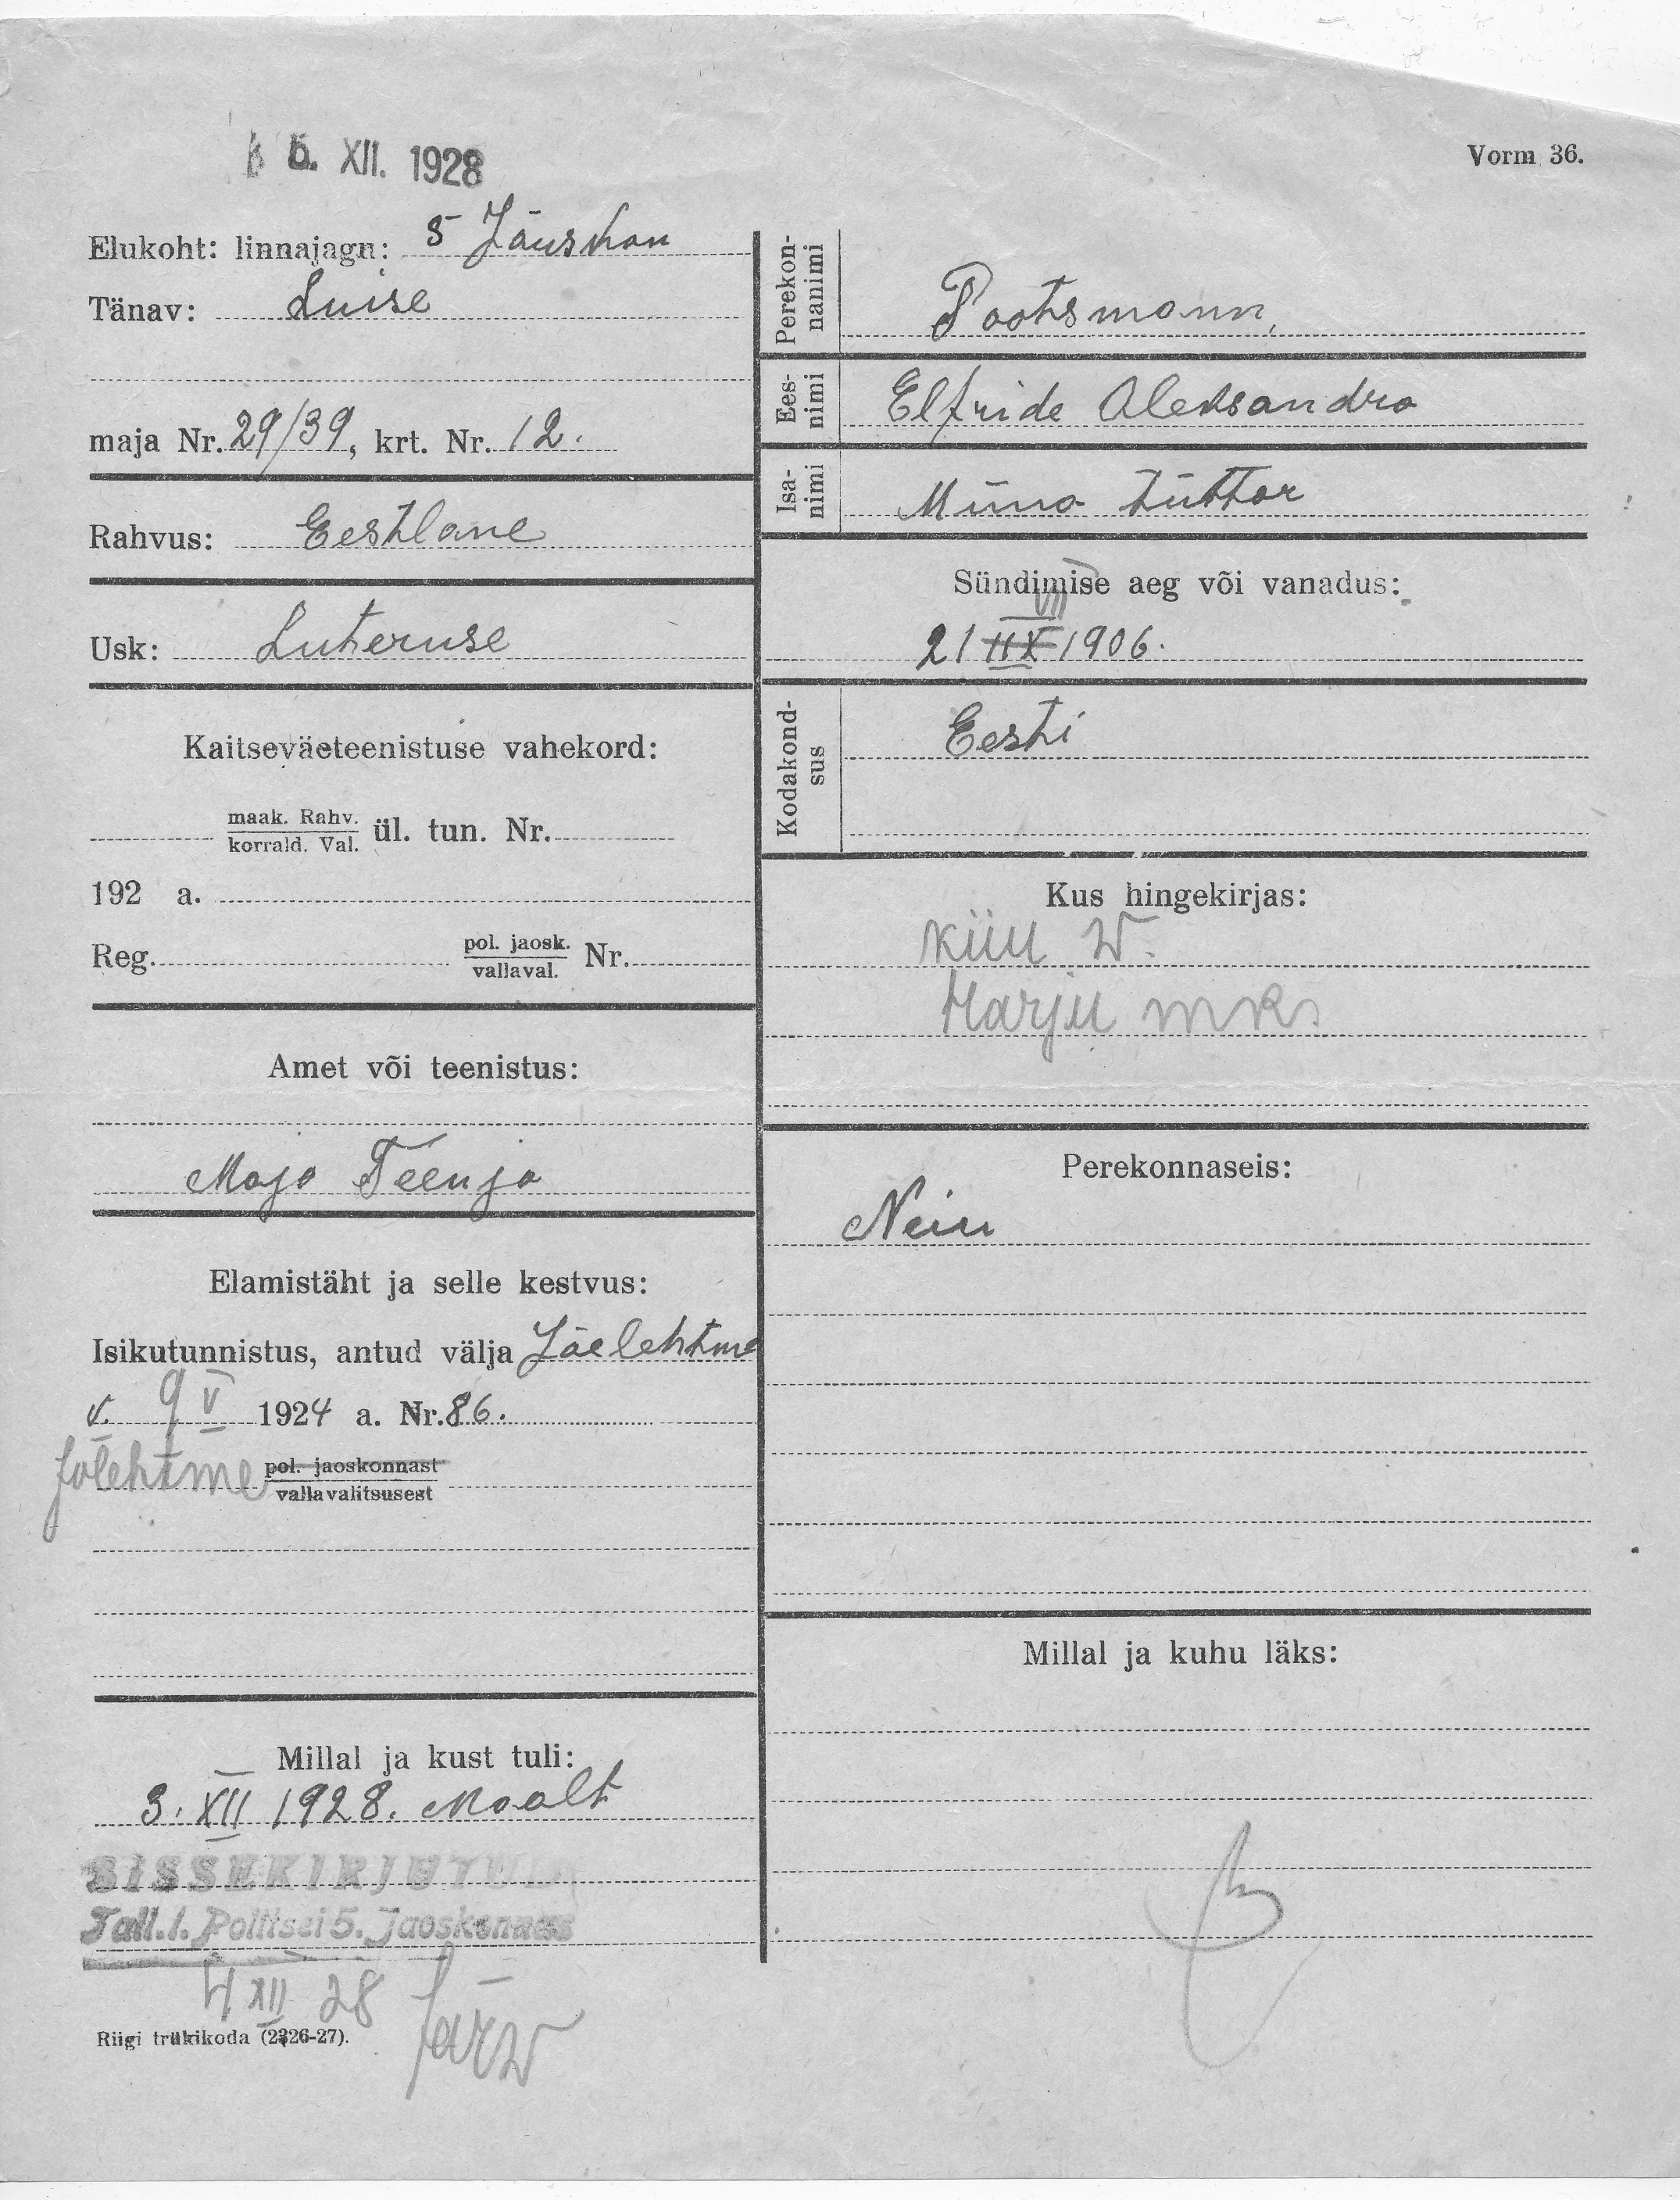 5. XII. 1928
Vorm 36.
Elukoht: linnajagu: 5 Jäuskon
Tänav: Luise
maja Nr. 29/39, krt. Nr. 12.
Rahvus: Eestlane
Usk: Luteruse
Kaitseväeteenistuse vahekord:
maak. Rahv.
korrald. Val. ül. tun. Nr.
192 a.
Reg. pol. jaosk. Nr.
vallaval.
Amet või teenistus:
Maja Teenja
Elamistäht ja selle kestvus:
Isikutunnistus, antud välja Jõelehtme
v. 9 V 1924 a. Nr. 86.
Jõlehtme pol. jaoskonnast
vallavalitsusest
Millal ja kust tuli:
3. XII 1928. Maalt
SISSEKIRJUTUD
Tall.l. Politsei 5. Jaoskonnas
4 XII 28 Järw
Riigi trükikoda (2326-27).
Perekon-
nanimi
Pootsmann,
Ees-
nimi
Elfride Aleksandra
Isa-
nimi
Miina tüttar
Sündimise aeg või vanadus:
VII
21 IIX 1906.
Kodakond-
sus
Eesti
Kus hingekirjas:
Kiiu W.
Harju mk.
Perekonnaseis:
Neiu
Millal ja kuhu läks: